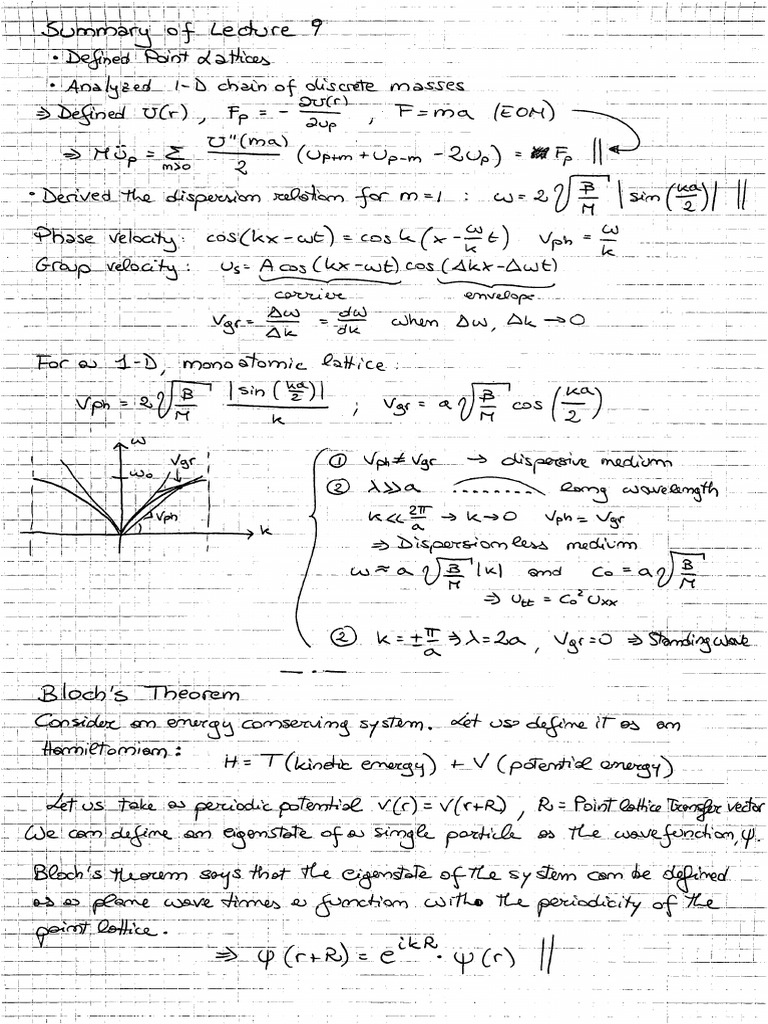 Summary of Lecture 9
• Defined Point Lattices
• Analyzed 1-D chain of discrete masses
⇒ Defined U(r), Fp = - ∂U(r)/∂up , F = ma (EOM)
⇒ Müp = Σ_{m>0} U''(ma)/2 (Up+m + Up-m - 2Up) = Fp ||
• Derived the dispersion relation for m=1 : ω = 2√(B/M) |sin(ka/2)| ||
Phase velocity: cos(kx-ωt) = cos k(x - ω/k t) Vph = ω/k
Group velocity: us = A cos(kx-ωt) cos(Δkx-Δωt)
carrier envelope
Vgr = Δω/Δk = dω/dk when Δω, Δk → 0
For a 1-D, monoatomic lattice:
Vph = 2√(B/M) |sin(ka/2)|/k ; Vgr = a√(B/M) cos(ka/2)
ω
ω0
Vgr
Vph
k
① Vph ≠ Vgr → dispersive medium
② λ≫a ........ long wavelength
k ≪ 2π/a → k→0 Vph = Vgr
⇒ Dispersionless medium
ω ≈ a√(B/M) |k| and C0 = a√(B/M)
⇒ Utt = C0² Uxx
② k = ±π/a ⇒ λ = 2a, Vgr = 0 ⇒ Standing wave
Bloch's Theorem
Consider an energy conserving system. Let us define it as an
Hamiltonian:
H = T (kinetic energy) + V (potential energy)
Let us take a periodic potential V(r) = V(r+R) , R = Point lattice Transfer vector
We can define an eigenstate of a single particle as the wavefunction, ψ.
Bloch's theorem says that the eigenstate of the system can be defined
as a plane wave times a function with the periodicity of the
point lattice.
⇒ ψ(r+R) = e^{ikR} · ψ(r) ||